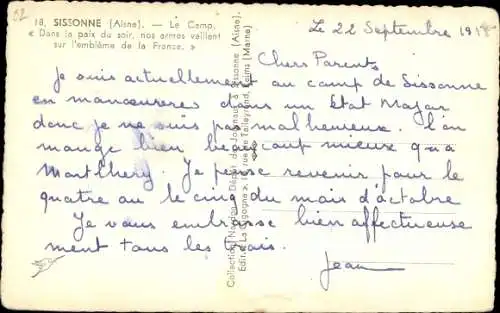 52
18. SISSONNE (Aisne). — Le Camp.
« Dans la paix du soir, nos armes veillent
sur l'emblème de la France. »
Le 22 Septembre
Chers Parents
Je suis actuellement au camp de Sissonne
en manœuvres dans un Etat Major
donc je ne suis pas malheureux. l'on
mange bien beaucoup mieux qu'a
Montlhery. Je pense revenir pour le
quatre au le cinq du mois d'octobre
Je vous embrasse bien affectueuse
ment tous les trois.
Jean
Collection Dépôt des Journaux à Sissonne (Aisne)
Edit. La Cigogne », rue de Talleyrand, Reims (Marne)